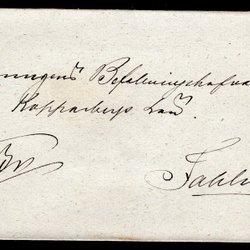 Konungens Befallningshafva
Kopparbergs Län.
Fahlu